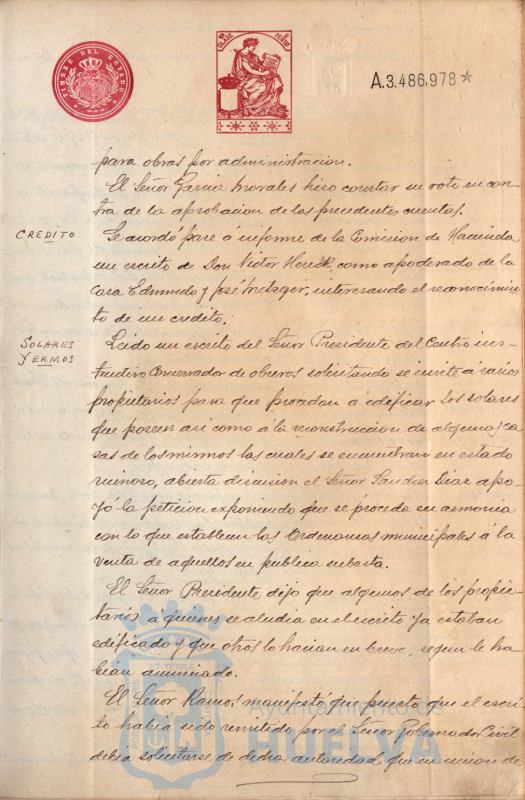 TIMBRE DEL ESTADO
A.3.486.978*
para obras por administracion.
El Señor Garcia Morales hizo constar su voto en con-
tra de la aprobacion de las precedentes cuentas.
CREDITO
Se acordó pase á informe de la Comision de Hacienda
un escrito de Don Victor como apoderado de la
Casa Edmundo y José Metzger, interesando el reconocimien-
to de un credito.
SOLARES
YERMOS
Leido un escrito del Señor Presidente del Centro ins-
tructivo Conservador de obreros solicitando se invite á varios
propietarios para que procedan á edificar los solares
que poseen asi como á la reconstruccion de algunas ca-
sas de los mismos las cuales se encuentran en estado
ruinoso, abierta discusion el Señor Sanchez Diaz apo-
yó la peticion exponiendo que se proceda en armonia
con lo que establecen las Ordenanzas municipales á la
venta de aquellos en publica subasta.
El Señor Presidente dijo que algunos de los propie-
tarios á quienes se aludia en el escrito ya estaban
edificado y que otros lo harian en breve, segun le ha-
bian anunciado.
El Señor Ramos manifestó que puesto que el escri-
to habia sido remitido por el Señor Gobernador Civil
debia solicitarse de dicha autoridad que en union de
Ayuntamiento de
HUELVA